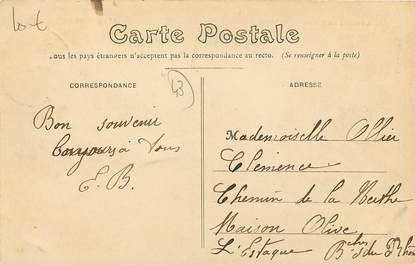 Lot
Carte Postale
Tous les pays étrangers n'acceptent pas la correspondance au recto. (Se renseigner à la poste)
CORRESPONDANCE
43
ADRESSE
Bon souvenir
à Vous
E. B.
Mademoiselle Ollier
Clemence
Chemin de la Nerthe
Maison Olive
L'Estaque Bches du Rhône